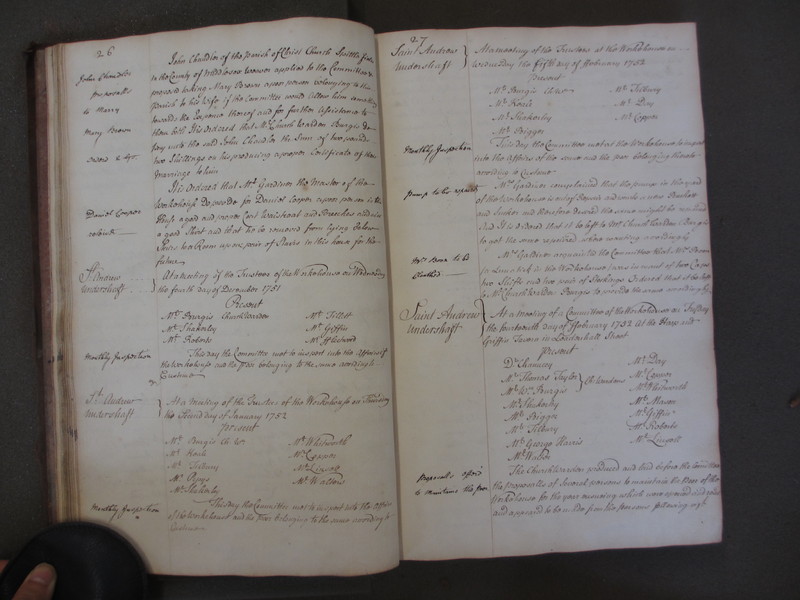 26
John Chandler
proposalls
to Marry
Mary Brown
order'd &c
John Chandler of the parish of Christ Church Spittle fields
in the County of Middlesex weaver applied to the Committee &
proposed taking Mary Brown a poor person belonging to this
parish to his wife if the Committee would allow him something
towards the Expence thereof and for further assistance to
them both It is ordered that Mr Church warden Burgis do
pay unto the said John Chandler the Sum of two pounds
two Shillings on his producing a proper Certificate of their
Marriage to him
Daniel Cooper
relieved
It is ordered that Mr Gardiner the Master of the
Workhouse Do provide for Daniel Cooper a poor person in the
House a good and proper Coat Waistcoat and Breeches and also
a good Shirt and that he be removed from lying below
Stairs to a Room up one pair of Stairs in this house for the
future
St Andrew
Undershaft
At a meeting of the Trustees of the Workhouse on Wednesday
the fourth day of December 1751
Present
Mr Burgis Churchwarden
Mr Tillett
Mr Shakerley
Mr Griffin
Mr Roberts
Monthly Inspection
This day the Committee met to inspect into the affairs of
the workhouse and the poor belonging to the same according to
Custome
St Andrew
Undershaft
At a meeting of the Trustees of the Workhouse on Thursday
the Second day of January 1752
Present
Mr Burgis Ch Wn
Mr Whitworth
Mr Hoare
Mr Cooper
Mr Tilbury
Mr Shakerley
Mr Walton
Monthly Inspection
This day the Committee met to inspect into the affairs
of the Workhouse and the Poor belonging to the same according to
Custome
27
Saint Andrew
Undershaft
At a meeting of the Trustees at the Workhouse on
Wednesday the fifth day of ffebruary 1752
Present
Mr Burgis Ch war
Mr Tilbury
Mr Day
Mr Shakerley
Mr Cooper
Mr Brigges
Monthly Inspection
This day the Committee met at the Workhouse to inspect
into the affairs of the same and the poor belonging thereto
according to Custome
Pump to be repaired
Mr Gardiner complained that the pump in the yard
of the Workhouse is very decayed and wants a new Bucket
and Sucker and therefore desired the same might be mended
And It is Ordered that it be left to Mr Church warden Burgis
to get the same repaired where wanting accordingly
to be
Cloathed
Mr Gardiner acquainted the Committee that
in the Workhouse was in want of two Caps
two Shifts and two pair of Stockings Ordered that it be left
to Mr Church warden Burgis to provide the same accordingly
Saint Andrew
Undershaft
At a meeting of a Committee of the Workhouse on Friday
the fourteenth day of ffebruary 1752 At the Hoop and
Griffin Tavern in Leadenhall Street
Present
Mr Day
Mr Thomas Taylor
Mr Wm Burgis
Ch wardens
Mr Whitworth
Mr Shakerley
Mr Brigges
Mr Griffin
Mr Tilbury
Mr Roberts
Mr George Harris
Mr Walton
Proposalls offer'd
to maintain the poor
The Churchwarden produced and laid before the Committee
the proposalls of Several persons to maintain the Poor of the
Workhouse for the year ensuing which were opened and read
and appeared to be under from the persons following viz